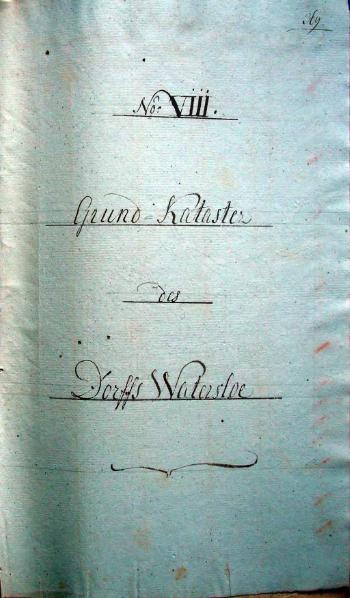 No: VIII.
Grund-Kataster
des
Dorffs Watersloe